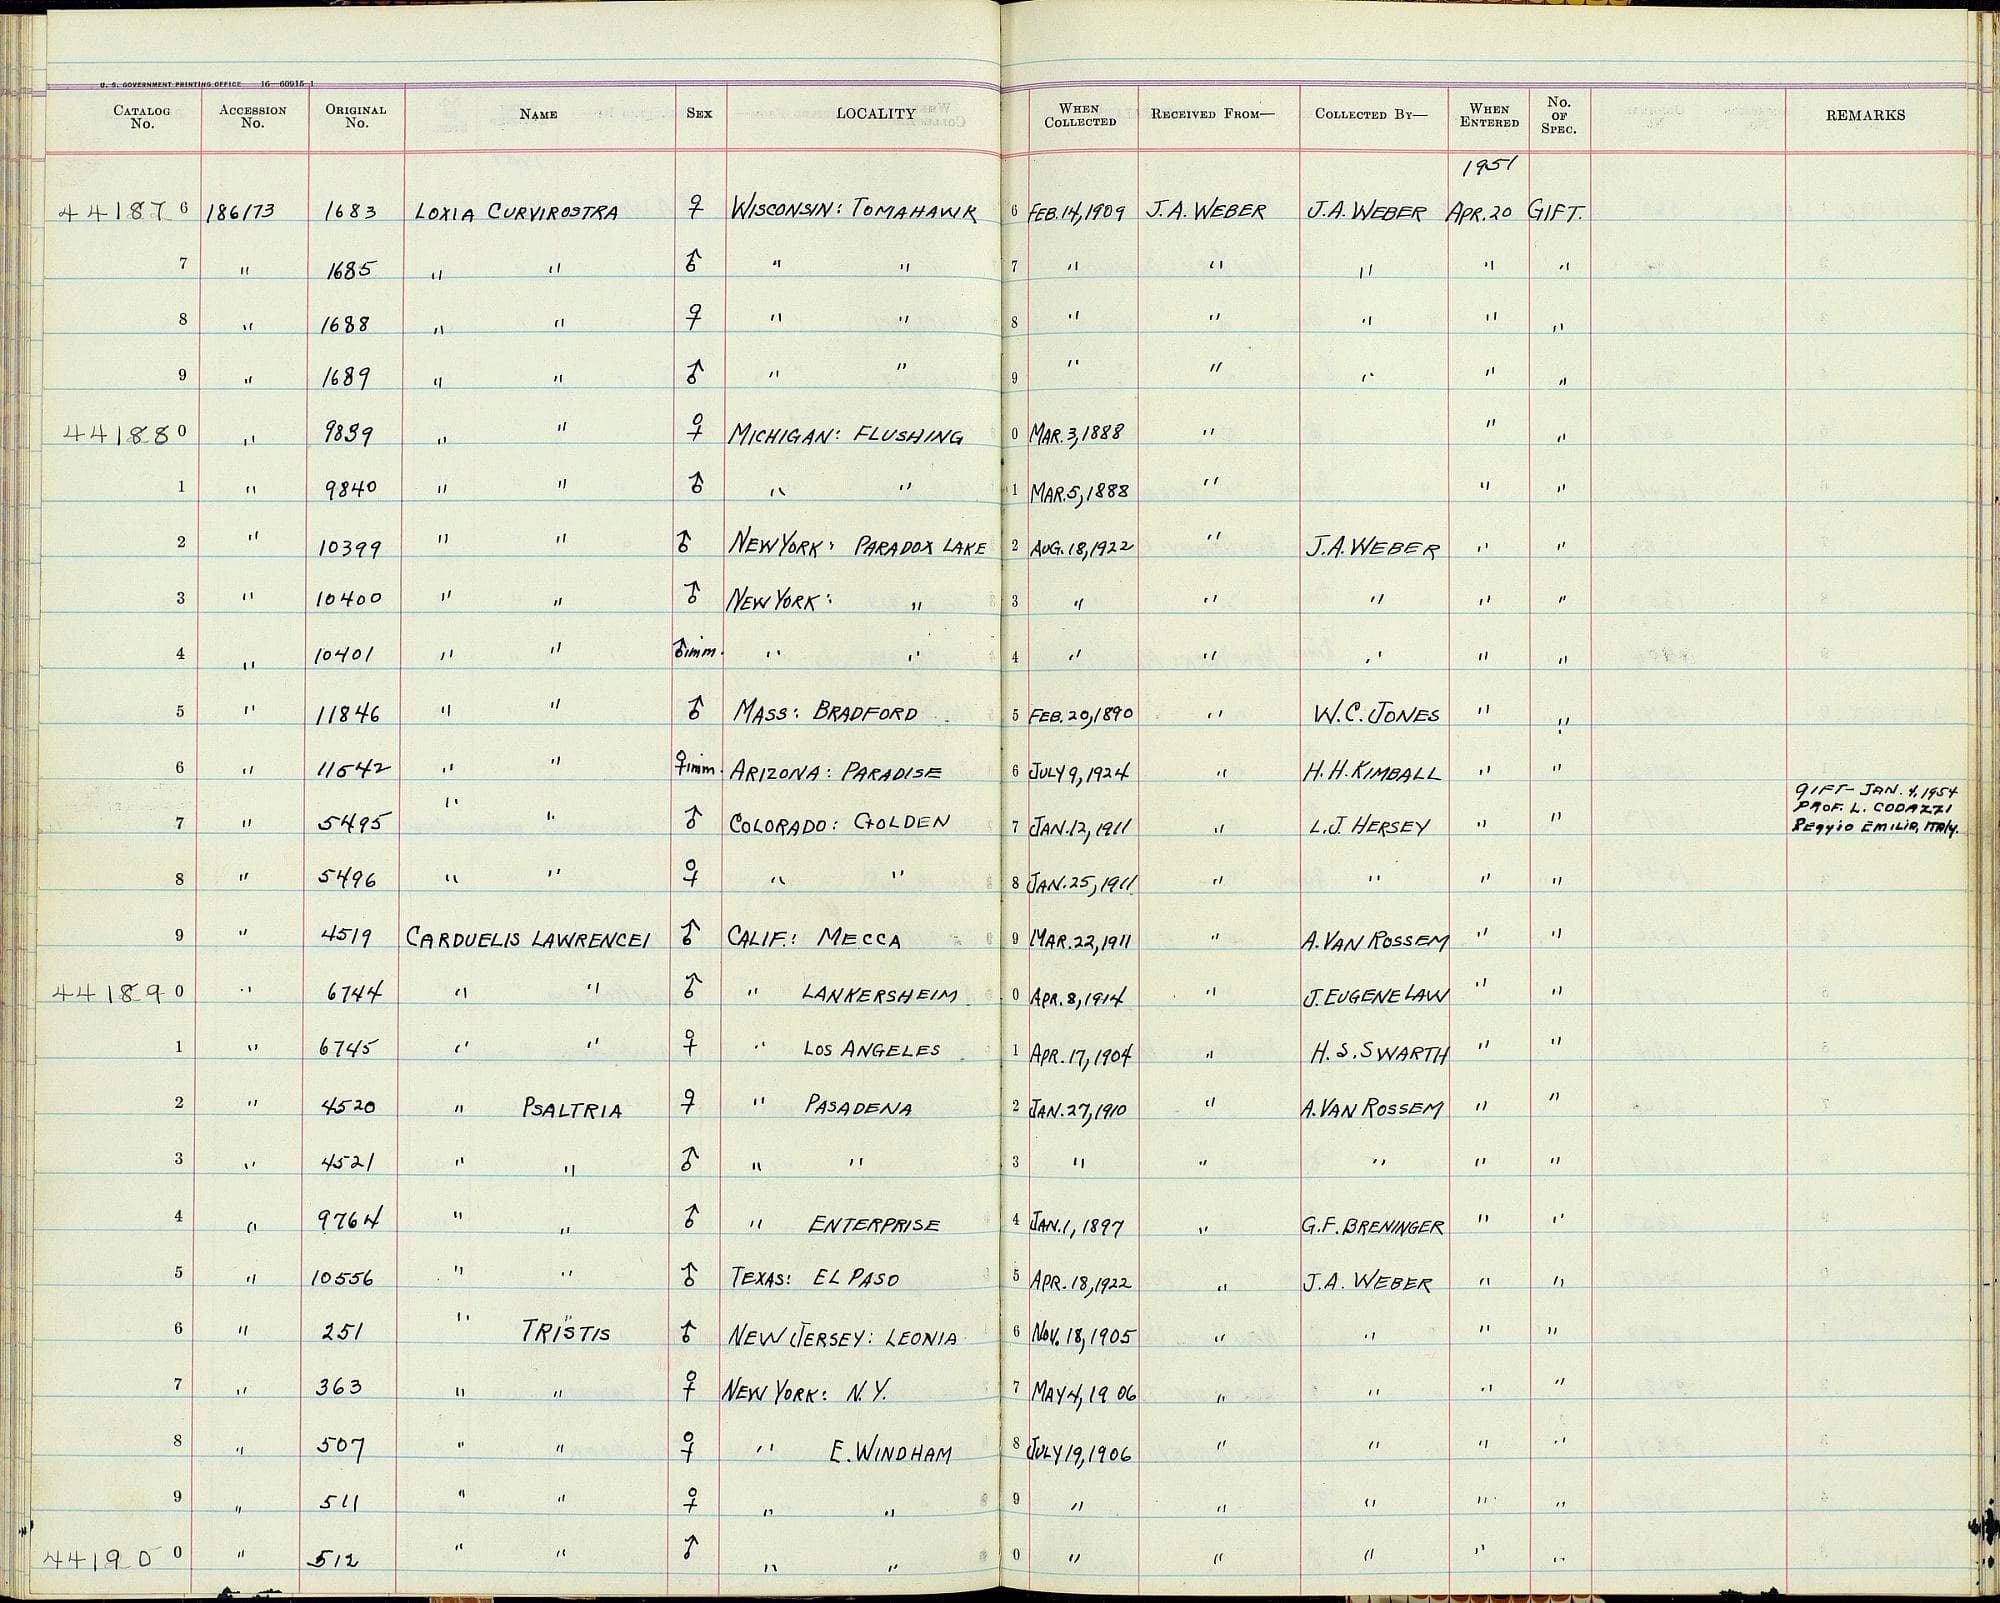 U. S. GOVERNMENT PRINTING OFFICE 16—60915-1
CATALOG No. ACCESSION No. ORIGINAL No. NAME SEX LOCALITY WHEN COLLECTED RECEIVED FROM— COLLECTED BY— WHEN ENTERED No. OF SPEC. REMARKS
1951
44187 6 186173 1683 LOXIA CURVIROSTRA ♀ WISCONSIN: TOMAHAWK 6 FEB. 14, 1909 J.A. WEBER J.A. WEBER APR. 20 GIFT.
7 " 1685 " " ♂ " " 7 " " " " "
8 " 1688 " " ♀ " " 8 " " " " "
9 " 1689 " " ♂ " " 9 " " " " "
44188 0 " 9839 " " ♀ MICHIGAN: FLUSHING 0 MAR. 3, 1888 " " "
1 " 9840 " " ♂ " " 1 MAR. 5, 1888 " " "
2 " 10399 " " ♂ NEW YORK: PARADOX LAKE 2 AUG. 18, 1922 " J.A. WEBER " "
3 " 10400 " " ♂ NEW YORK: " 3 " " " " "
4 " 10401 " " ♂ imm. " " 4 " " " " "
5 " 11846 " " ♂ MASS: BRADFORD 5 FEB. 20, 1890 " W.C. JONES " "
6 " 11542 " " ♀ imm. ARIZONA: PARADISE 6 JULY 9, 1924 " H.H. KIMBALL " "
7 " 5495 " " ♂ COLORADO: GOLDEN 7 JAN. 12, 1911 " L.J. HERSEY " " GIFT— JAN. 4, 1954
PROF. L. CODAZZI
Reggio EMILIA, ITALY.
8 " 5496 " " ♀ " " 8 JAN. 25, 1911 " " " "
9 " 4519 CARDUELIS LAWRENCEI ♂ CALIF.: MECCA 9 MAR. 22, 1911 " A. VAN ROSSEM " "
44189 0 " 6744 " " ♂ " LANKERSHEIM 0 APR. 8, 1914 " J. EUGENE LAW " "
1 " 6745 " " ♀ " LOS ANGELES 1 APR. 17, 1904 " H. S. SWARTH " "
2 " 4520 " PSALTRIA ♀ " PASADENA 2 JAN. 27, 1910 " A. VAN ROSSEM " "
3 " 4521 " " ♂ " " 3 " " " " "
4 " 9764 " " ♂ " ENTERPRISE 4 JAN. 1, 1897 " G.F. BRENINGER " "
5 " 10556 " " ♂ TEXAS: EL PASO 5 APR. 18, 1922 " J.A. WEBER " "
6 " 251 " TRISTIS ♂ NEW JERSEY: LEONIA 6 NOV. 18, 1905 " " " "
7 " 363 " " ♀ NEW YORK: N.Y. 7 MAY 4, 1906 " " " "
8 " 507 " " ♀ " E. WINDHAM 8 JULY 19, 1906 " " " "
9 " 511 " " ♀ " " 9 " " " " "
44190 0 " 512 " " ♂ " " 0 " " " " "